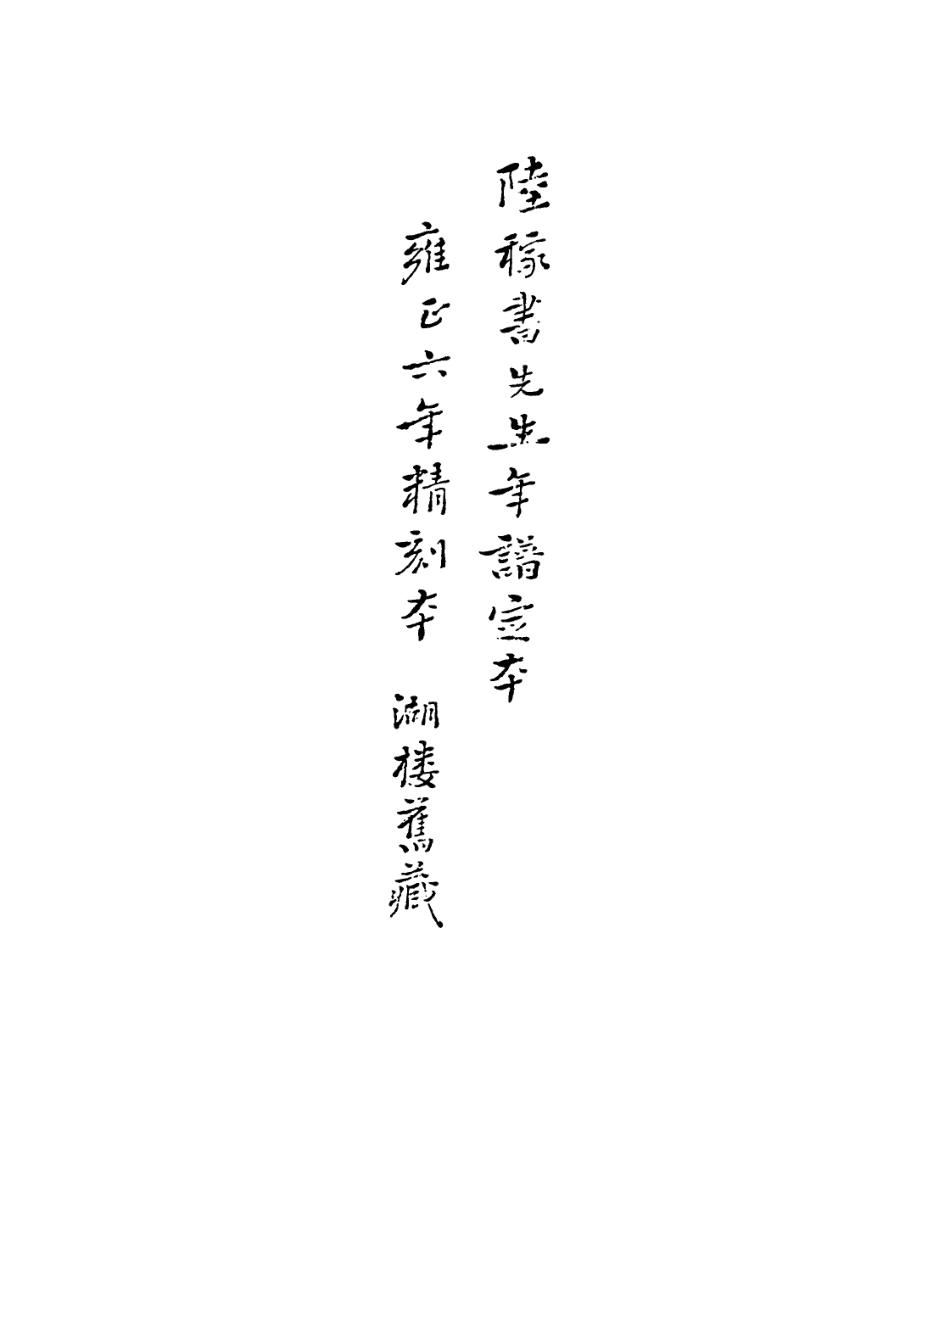 陸稼書先生年譜定本
雍正六年精刻本 湖楼舊藏